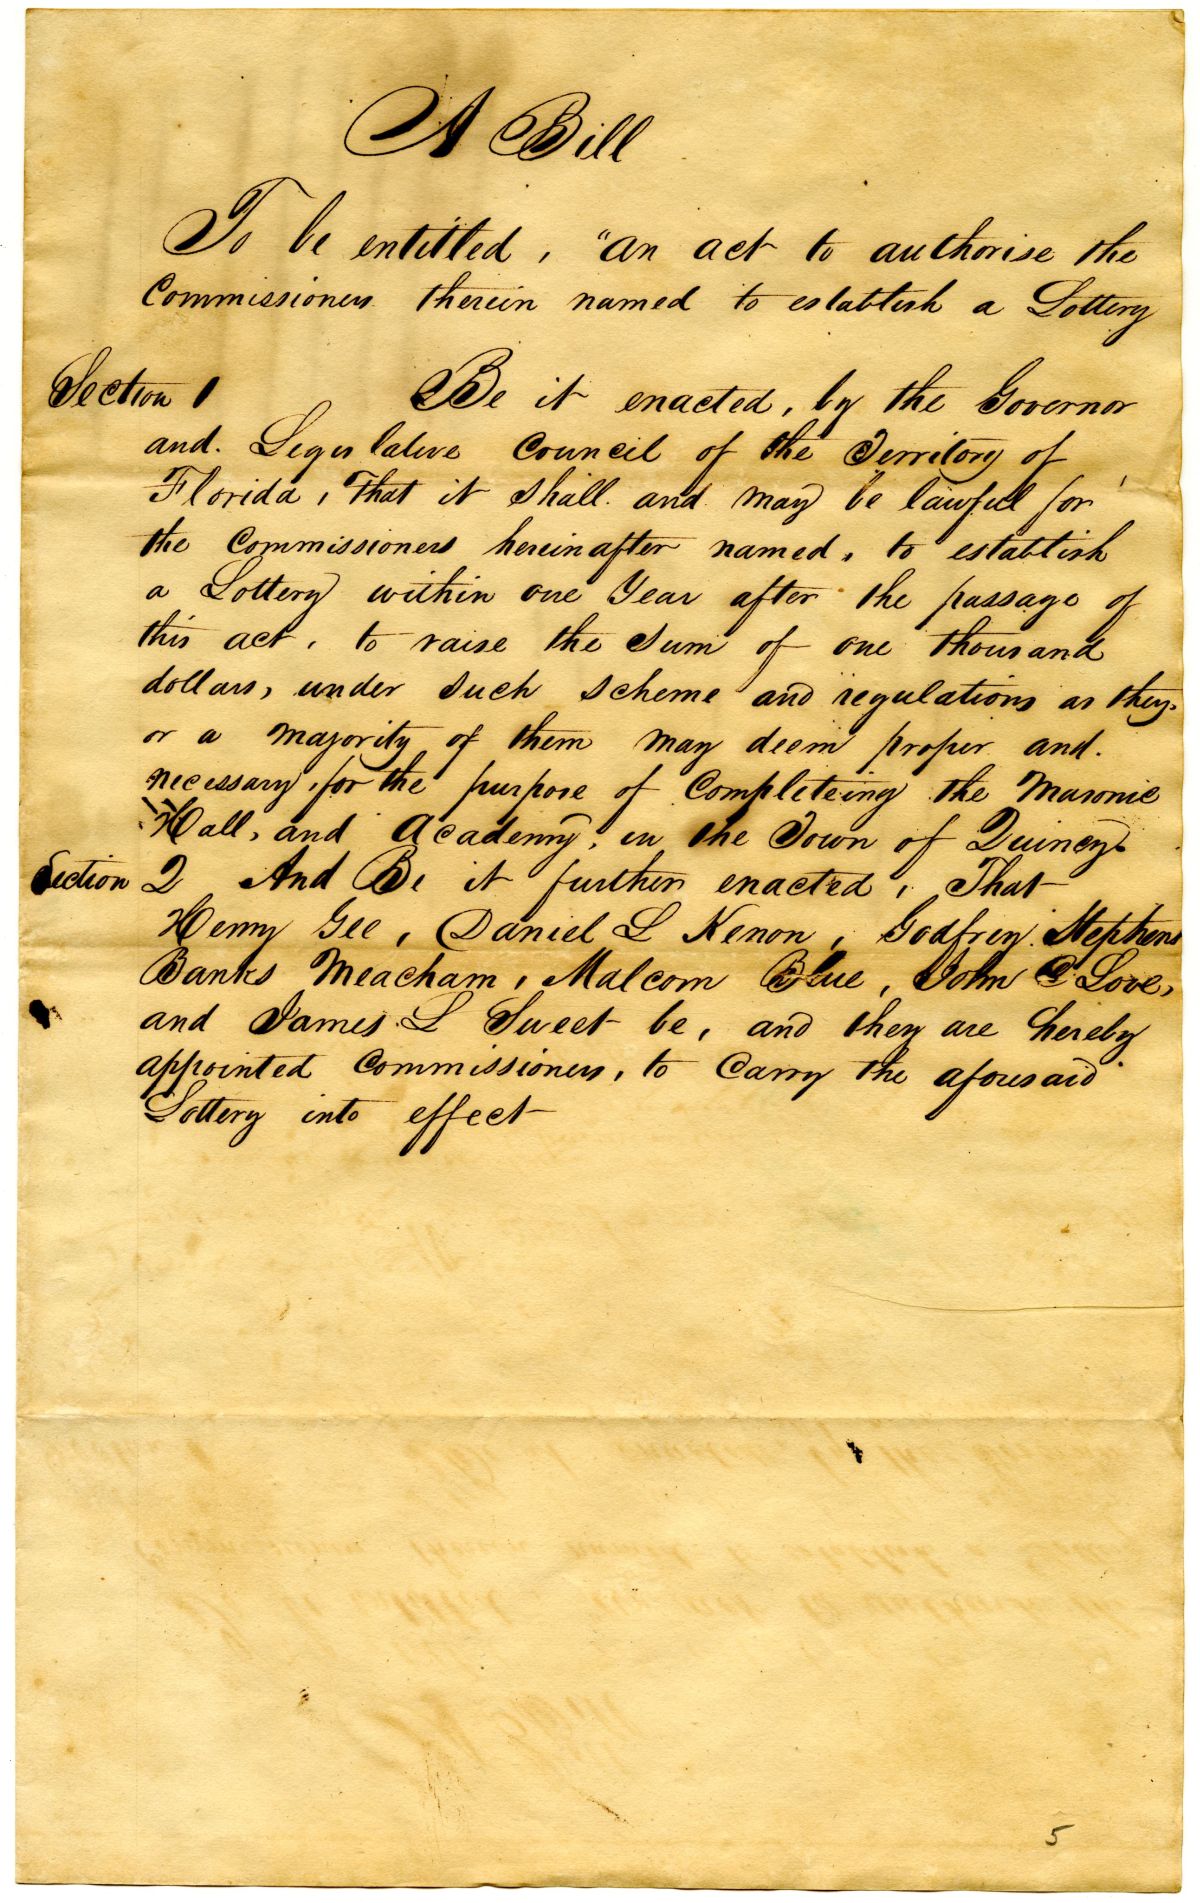 A Bill
To be entitled, "an act to authorise the
Commissioners therein named to establish a Lottery
Section 1 Be it enacted, by the Governor
and. Legislative Council of the Territory of
Florida, That it shall. and may be lawful for
the Commissioners hereinafter named, to establish
a Lottery within one Year after the passage of
this act, to raise the Sum of one thousand
dollars, under such scheme and regulations as they.
or a majority of them may deem proper and.
necessary, for the purpose of Completeing the Masonic
Hall, and Academy, in the Town of Quincy.
Section 2 And Be it further enacted, That
Henry Gee, Daniel L Kenon, Godfrey Stephens
Banks Meacham, Malcom Blue, John C Love,
and James L Sweet be, and they are hereby
appointed Commissioners, to Carry the aforesaid
Lottery into effect
5